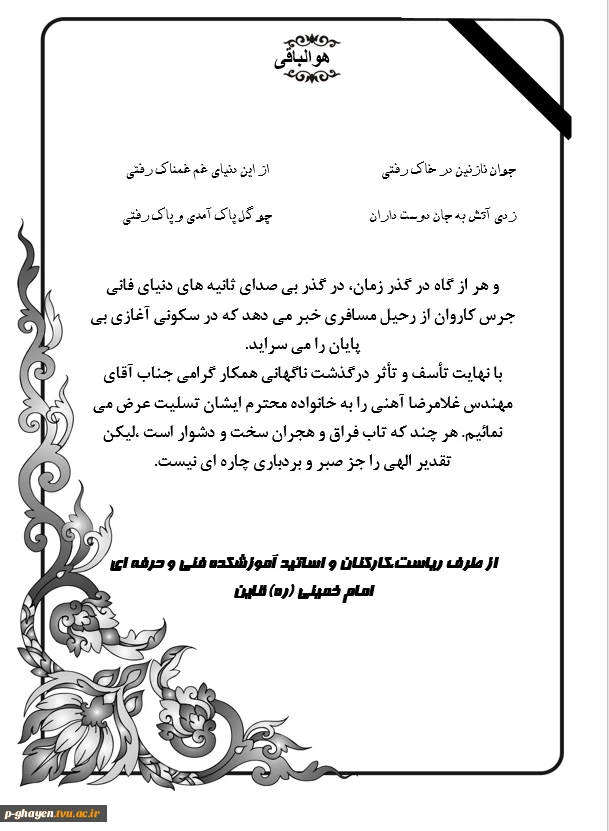 هو الباقی
جوان نازنین در خاک رفتی از این دنیای غم غمناک رفتی
زدی آتش به جان دوست داران چو گل پاک آمدی و پاک رفتی
و هر از گاه در گذر زمان، در گذر بی صدای ثانیه های دنیای فانی
جرس کاروان از رحیل مسافری خبر می دهد که در سکونی آغازی بی
پایان را می سراید.
با نهایت تأسف و تأثر درگذشت ناگهانی همکار گرامی جناب آقای
مهندس غلامرضا آهنی را به خانواده محترم ایشان تسلیت عرض می
نمائیم. هر چند که تاب فراق و هجران سخت و دشوار است ،لیکن
تقدیر الهی را جز صبر و بردباری چاره ای نیست.
از طرف ریاست،کارکنان و اساتید آموزشکده فنی و حرفه ای
امام خمینی (ره) قاین
p-ghayen.tvu.ac.ir